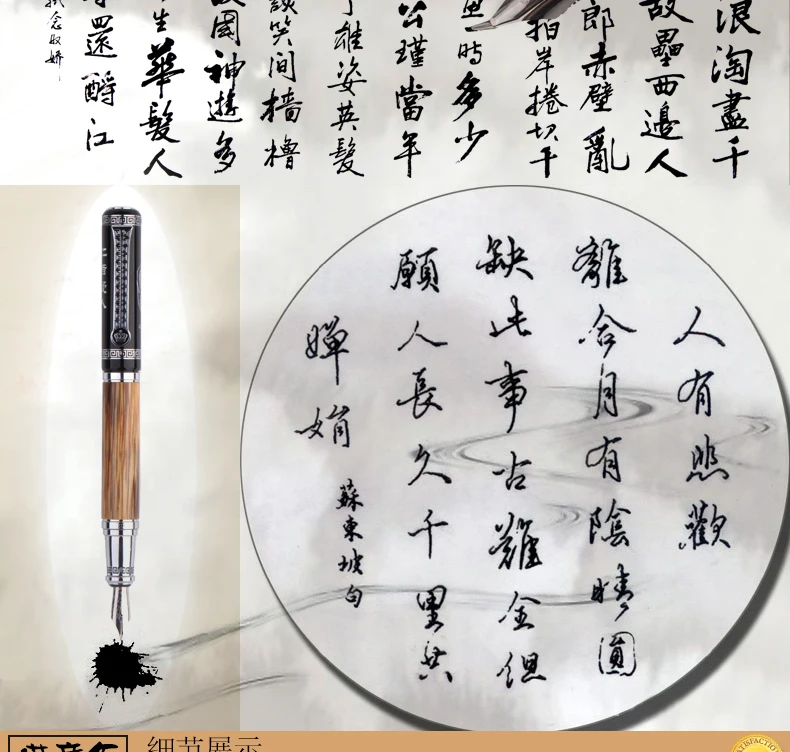 浪淘盡千
故壘西邊人
郎赤壁亂
拍岸捲
一時多少
公瑾當年
雄姿英髮
談笑间樯櫓
國神遊多
生華髮人
還酹江
念奴娇
人有悲歡
離合月有陰晴圓
缺此事古難全但
願人長久千里共
嬋娟
蘇東坡句
细节展示